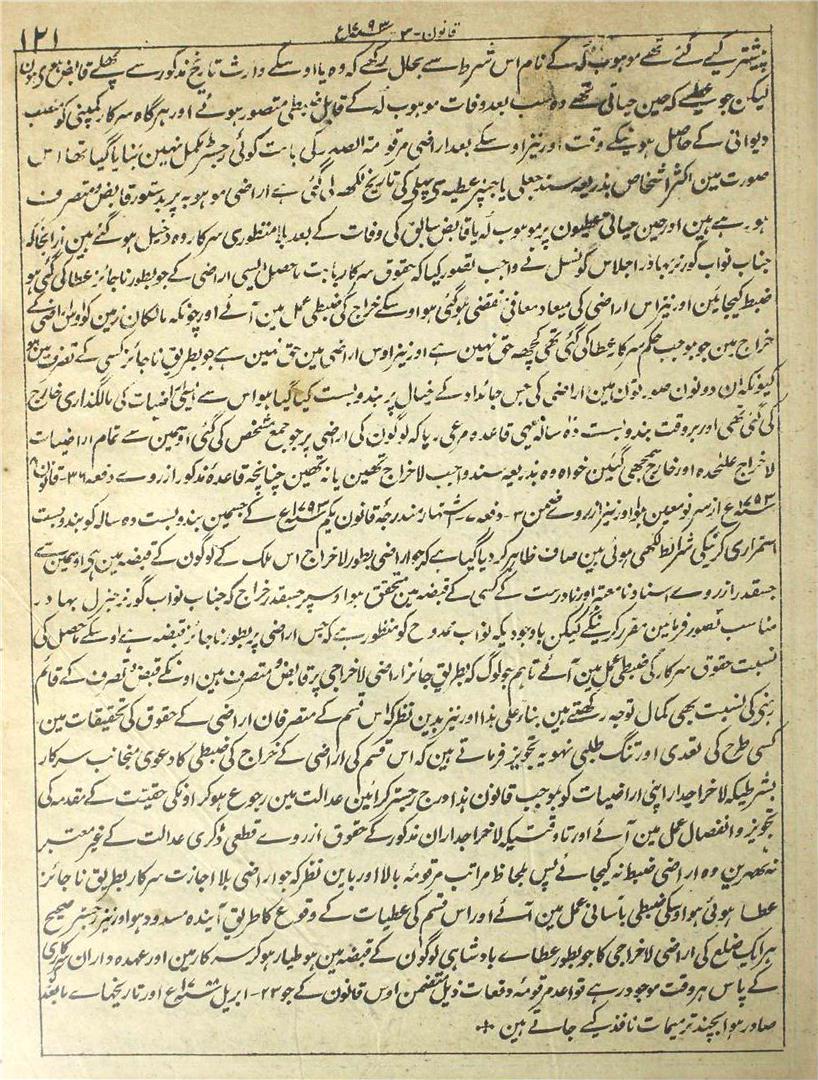 قانون - ۳ - ۱۷۹۳ع
۱۲۱
پیشتر کیے گئے تھے موہوب لہ کے نام اس شرط سے بحال رکھے کہ وہ یا اوسکے وارث تاریخ مذکور سے پہلے قابض
لیکن جو عطیے کہ حین حیاتی تھے وہ سب بعد وفات موہوب لہ کے قابل ضبطی متصور ہوئے اور ہرگاہ سرکار کمپنی کو منصب
دیوانی کے حاصل ہونیکے وقت اور نیز اوسکے بعد اراضی مرقومۃ الصدر کی بابت کوئی رجسٹر مکمل نہین بنایا گیا تھا اس
صورت مین اکثر اشخاص بذریعہ سند جعلی یا جنپر عطیہ کی پہلی تاریخ لکھہ لی گئی ہے اراضی موہوبہ پر بدستور قابض و متصرف
ہو رہے ہین اور حین حیاتی عطیون پر موہوب لہ یا قابض سابق کی وفات کے بعد بلا منظوری سرکار وہ دخیل ہو گئے ہین ازانجا کہ
جناب نواب گورنر بہادر اجلاس کونسل نے واجب تصور کیا کہ حقوق سرکار بابت ماحصل ایسی اراضی کے جو بطور ناجائز عطا کی گئی ہو
ضبط کیجائین اور نیز اس اراضی کی میعاد معافی منقضی ہو گئی ہو اوسکے خراج کی ضبطی عمل مین آئے اور چونکہ مالکان زمین کو اوس اراضی کے
خراج مین جو بموجب حکم سرکار عطا کی گئی تھی کچھہ حق نہین ہے اور نیز اوس اراضی مین حق نہین ہے جو بطریق ناجائز کسی کے تصرف مین ہو
کیونکہ ان دونون صورتون مین اراضی کی جس جائداد کے خیال پر بندوبست کیا گیا ہو اس سے ایسی اراضیات کی مالگذاری خارج
کی گئی تھی اور بروقت بندوبست دہ سالہ یہی قاعدہ مرعی رہا کہ لوگون کی اراضی پر جو جمع مشخص کی گئی اوسمین سے تمام اراضیات
لاخراج علٰحدہ اور خارج سمجھی گئین خواہ وہ بذریعہ سند واجب لاخراج تھین یا نہ تھین چنانچہ قاعدہ مذکور ازروے دفعہ ۳۶ - قانون ۸
۱۷۹۳ع از سر نو معین ہوا اور نیز ازروے ضمن ۳ - دفعہ ۷ - اشتہار مندرجہ قانون یکم ۱۷۹۳ع کے جسمین بندوبست دہ سالہ کو بندوبست
استمراری کرنیکی شرائط لکھی ہوئی ہین صاف ظاہر کر دیا گیا ہے کہ جو اراضی بطور لاخراج اس ملک کے لوگون کے قبضہ مین ہی اوسمین سے
جسقدر ازروے اسناد نامعتبر اور نادرست کے کسی کے قبضہ مین متحقق ہو اوسپر جسقدر خراج کہ جناب نواب گورنر جنرل بہادر
مناسب تصور فرمائین مقرر کرینگے لیکن باوجودیکہ نواب ممدوح کو منظور ہے کہ جس اراضی پر بطور ناجائز قبضہ ہے اوسکے ماحصل کی
نسبت حقوق سرکار کی ضبطی عمل مین آئے تاہم جو لوگ کہ بطریق جائز اراضی لاخراجی پر قابض و متصرف ہین اونکے قبض و تصرف کے قائم
رہنے کی نسبت بھی کمال توجہ رکھتے ہین بناء علی ہذا اور نیز بدین نظر کہ اس قسم کے متصرفان اراضی کے حقوق کی تحقیقات مین
کسی طرح کی تعدی اور تنگ طلبی نہو یہ تجویز فرماتے ہین کہ اس قسم کی اراضی کے خراج کی ضبطی کا دعوی منجانب سرکار
بشرطیکہ لاخراجدار اپنی اراضیات کو بموجب قانون ہذا درج رجسٹر کرائین عدالت مین رجوع ہو کر اونکی حقیت کے مقدمہ کی
تجویز و انفصال عمل مین آئے اور تاوقتیکہ لاخراجداران مذکور کے حقوق ازروے قطعی ڈکری عدالت کے غیر معتبر
نہ ٹھہرین وہ اراضی ضبط نہ کیجائے پس بلحاظ مراتب مرقومہ بالا اور باین نظر کہ جو اراضی بلا اجازت سرکار بطریق ناجائز
عطا ہوئی ہو اوسکی ضبطی باسانی عمل مین آئے اور اس قسم کی عطیات کے وقوع کا طریق آیندہ مسدود ہو اور نیز رجسٹر صحیح
ہر ایک ضلع کی اراضی لاخراجی کا جو بطور عطاے بادشاہی لوگون کے قبضہ مین ہو طیار ہو کر سرکار مین اور عہدہ داران سرکاری
کے پاس ہر وقت موجود رہے قواعد مرقومہ دفعات ذیل متضمن اوس قانون کے جو ۲۳ - اپریل ۱۷۸۸ع اور تاریخہاے مابعد کو
صادر ہوا بچند ترمیمات نافذ کیے جاتے ہین